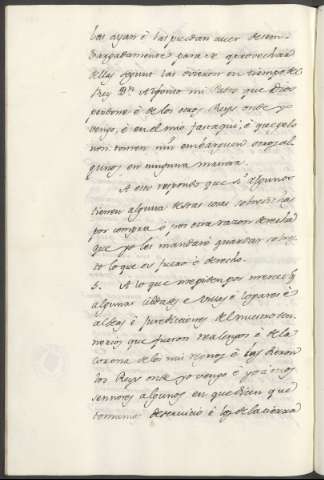 las ayan è las puedan auer desem-
bargadamente para se aprovechar
dellas segunt las ovieron en tiempo del
Rey Dn. Alfonso mi Padre que Dios
perdone è de los otros Reys onde yo
vengo, è en el mio fasta aqui, è que gelo
non tomen nin embarguen otros al-
gunos en ninguna manera.
A esto respondo que si algunos
tienen algunas destas cosas sobredichas
por compra ò por otra razon derecha
que yo les mandarè guardar sobre
lo que es fuero è derecho.
5. A lo que me piden por merced q
algunas cibdades è villas è logares è
aldeas è juredicciones del mi senno-
rio que fueron realengos è de la
corona de los mis regnos è las dieron
los Reys onde yo vengo è yo à otros
sennores algunos en que dicen que
tomamos deservicio è los de la tierra